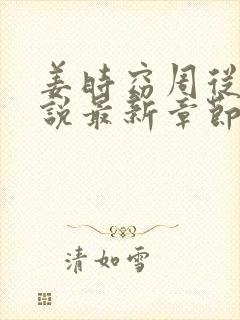 姜時窈周從
說最新章節
清如雪